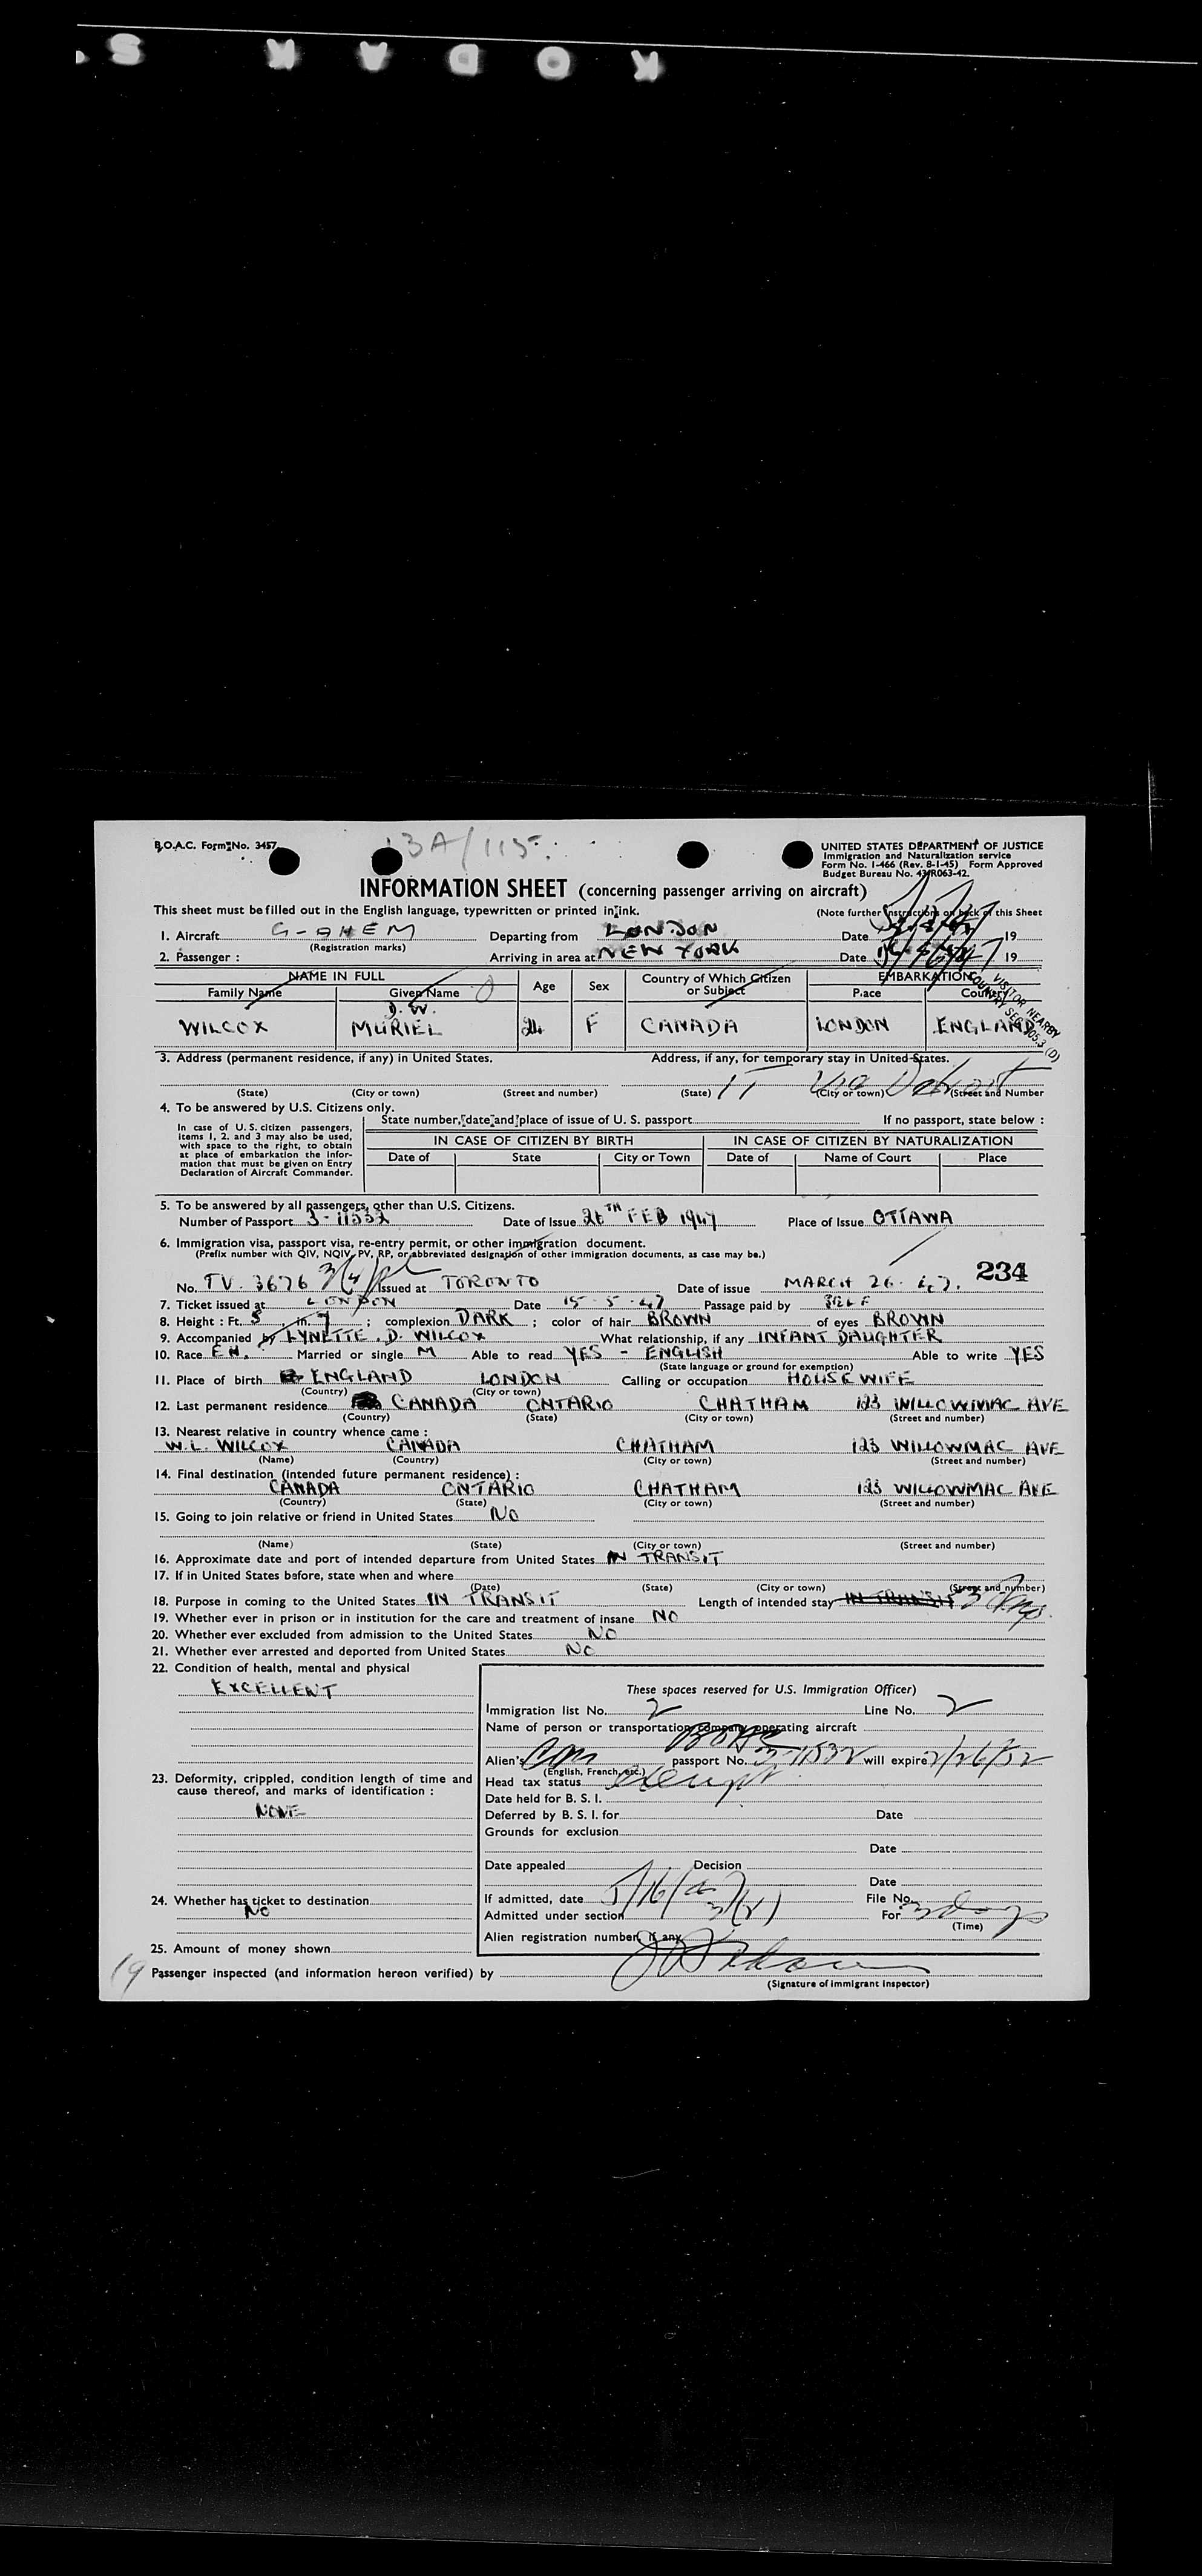 S K A D O K
B.O.A.C. Form No. 3457
13A/115.
UNITED STATES DEPARTMENT OF JUSTICE
Immigration and Naturalization service
Form No. I-466 (Rev. 8-1-45) Form Approved
Budget Bureau No. 43-R063-42.
INFORMATION SHEET (concerning passenger arriving on aircraft)
This sheet must be filled out in the English language, typewritten or printed in ink.
(Note further instructions on back of this Sheet
1. Aircraft G-AHEM Departing from LONDON Date 19
(Registration marks)
2. Passenger : Arriving in area at NEW YORK Date 19
NAME IN FULL Age Sex Country of Which Citizen or Subject EMBARKATION
Family Name Given Name Place Country
VISITOR NEARBY
COUNTRY SEC 105.3 (D)
D. W.
WILCOX MURIEL 24 F CANADA LONDON ENGLAND
3. Address (permanent residence, if any) in United States. Address, if any, for temporary stay in United States.
Via Detroit
(State) (City or town) (Street and number) (State) (City or town) (Street and Number
4. To be answered by U.S. Citizens only.
In case of U.S. citizen passengers, items 1, 2, and 3 may also be used, with space to the right, to obtain at place of embarkation the information that must be given on Entry Declaration of Aircraft Commander.
State number, date and place of issue of U. S. passport If no passport, state below :
IN CASE OF CITIZEN BY BIRTH IN CASE OF CITIZEN BY NATURALIZATION
Date of State City or Town Date of Name of Court Place
5. To be answered by all passengers other than U.S. Citizens.
Number of Passport 3-11532 Date of Issue 26TH FEB 1947 Place of Issue OTTAWA
6. Immigration visa, passport visa, re-entry permit, or other immigration document.
(Prefix number with QIV, NQIV, PV, RP, or abbreviated designation of other immigration documents, as case may be.)
234
No. TV. 3676 Issued at TORONTO Date of issue MARCH 26. 47.
7. Ticket issued at LONDON Date 15-5-47 Passage paid by SELF
8. Height : Ft. 5 in 7 ; complexion DARK ; color of hair BROWN of eyes BROWN
9. Accompanied by LYNETTE. D. WILCOX What relationship, if any INFANT DAUGHTER
10. Race EN. Married or single M Able to read YES - ENGLISH Able to write YES
(State language or ground for exemption)
11. Place of birth ENGLAND LONDON Calling or occupation HOUSEWIFE
(Country) (City or town)
12. Last permanent residence CANADA ONTARIO CHATHAM 123 WILLOWMAC AVE
(Country) (State) (City or town) (Street and number)
13. Nearest relative in country whence came :
W.L. WILCOX CANADA CHATHAM 123 WILLOWMAC AVE
(Name) (Country) (City or town) (Street and number)
14. Final destination (intended future permanent residence) :
CANADA ONTARIO CHATHAM 123 WILLOWMAC AVE
(Country) (State) (City or town) (Street and number)
15. Going to join relative or friend in United States NO
(Name) (State) (City or town) (Street and number)
16. Approximate date and port of intended departure from United States IN TRANSIT
17. If in United States before, state when and where
(Date) (State) (City or town) (Street and number)
18. Purpose in coming to the United States IN TRANSIT Length of intended stay IN TRANSIT 3 days.
19. Whether ever in prison or in institution for the care and treatment of insane NO
20. Whether ever excluded from admission to the United States NO
21. Whether ever arrested and deported from United States NO
22. Condition of health, mental and physical
EXCELLENT
23. Deformity, crippled, condition length of time and cause thereof, and marks of identification :
NONE
24. Whether has ticket to destination
NO
25. Amount of money shown
These spaces reserved for U.S. Immigration Officer)
Immigration list No. 2 Line No. 2
Name of person or transportation company operating aircraft
BOAC
Alien's passport No. 3-11532 will expire 2/26/52
(English, French, etc.)
Head tax status exempt
Date held for B. S. I.
Deferred by B. S. I. for Date
Grounds for exclusion
Date
Date appealed Decision
Date
If admitted, date 5/16/47 File No.
Admitted under section 3(2) For 3 days
(Time)
Alien registration number, if any
19
Passenger inspected (and information hereon verified) by
(Signature of immigrant Inspector)